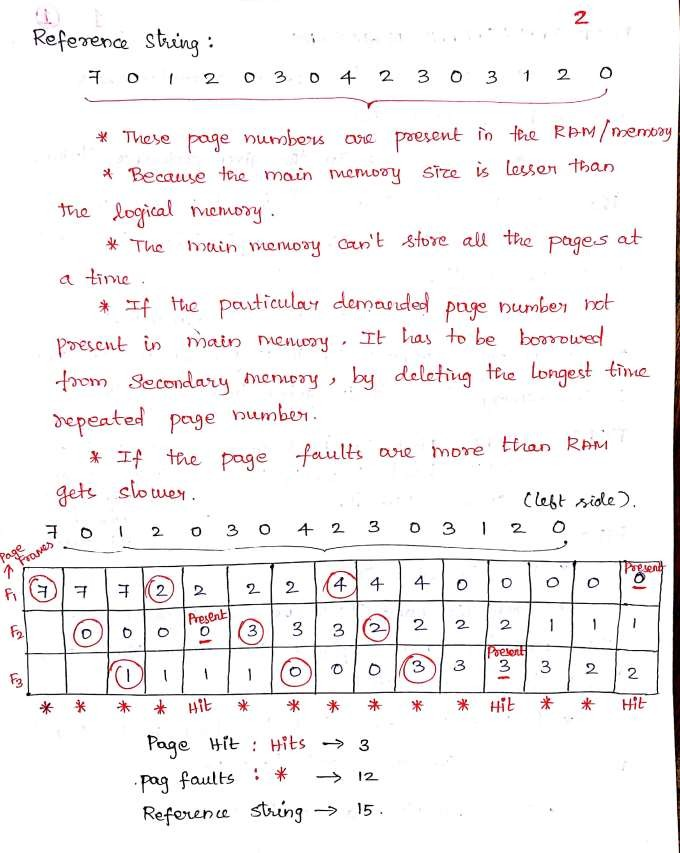 2
Reference string :
7 0 1 2 0 3 0 4 2 3 0 3 1 2 0
* These page numbers are present in the RAM/memory
* Because the main memory size is lesser than
the logical memory.
* The main memory can't store all the pages at
a time.
* If the particular demanded page number not
present in main memory. It has to be borrowed
from secondary memory, by deleting the longest time
repeated page number.
* If the page faults are more than RAM
gets slower.
(left side).
7 0 1 2 0 3 0 4 2 3 0 3 1 2 0
Page Frames
F1 7 7 7 2 2 2 2 4 4 4 0 0 0 0 Present 0
F2 0 0 0 Present 0 3 3 3 2 2 2 2 1 1 1
F3 1 1 1 1 0 0 0 3 3 Present 3 3 2 2
* * * * Hit * * * * * * Hit * * Hit
Page Hit : Hits → 3
.pag faults : * → 12
Reference string → 15.